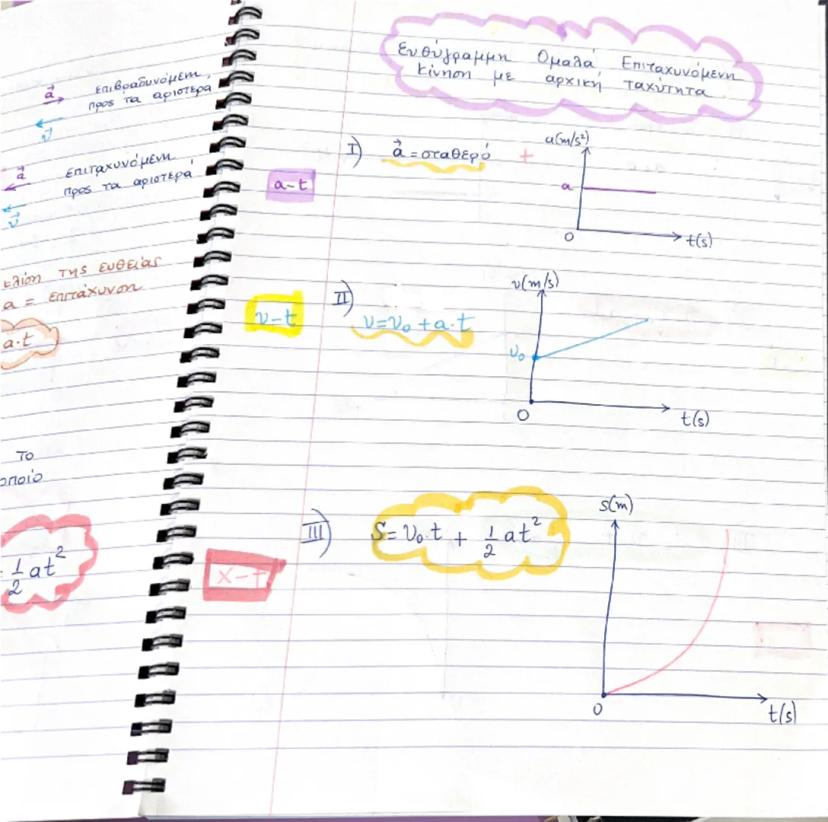 a⃗ επιβραδυνόμενη,
προς τα αριστερά
v⃗
a⃗ επιταχυνόμενη
προς τα αριστερά
v⃗
κλίση της ευθείας
a = επιτάχυνση
a·t
το
οποίο
1/2 at²
Ευθύγραμμη Ομαλά Επιταχυνόμενη
Κίνηση με αρχική ταχύτητα
I) a⃗ = σταθερό +
a-t
a(m/s²)
a
0
t(s)
II)
υ-t
υ=υ₀+a·t
υ(m/s)
υ₀
0
t(s)
III) S=υ₀·t + 1/2 at²
x-t
s(m)
0
t(s)